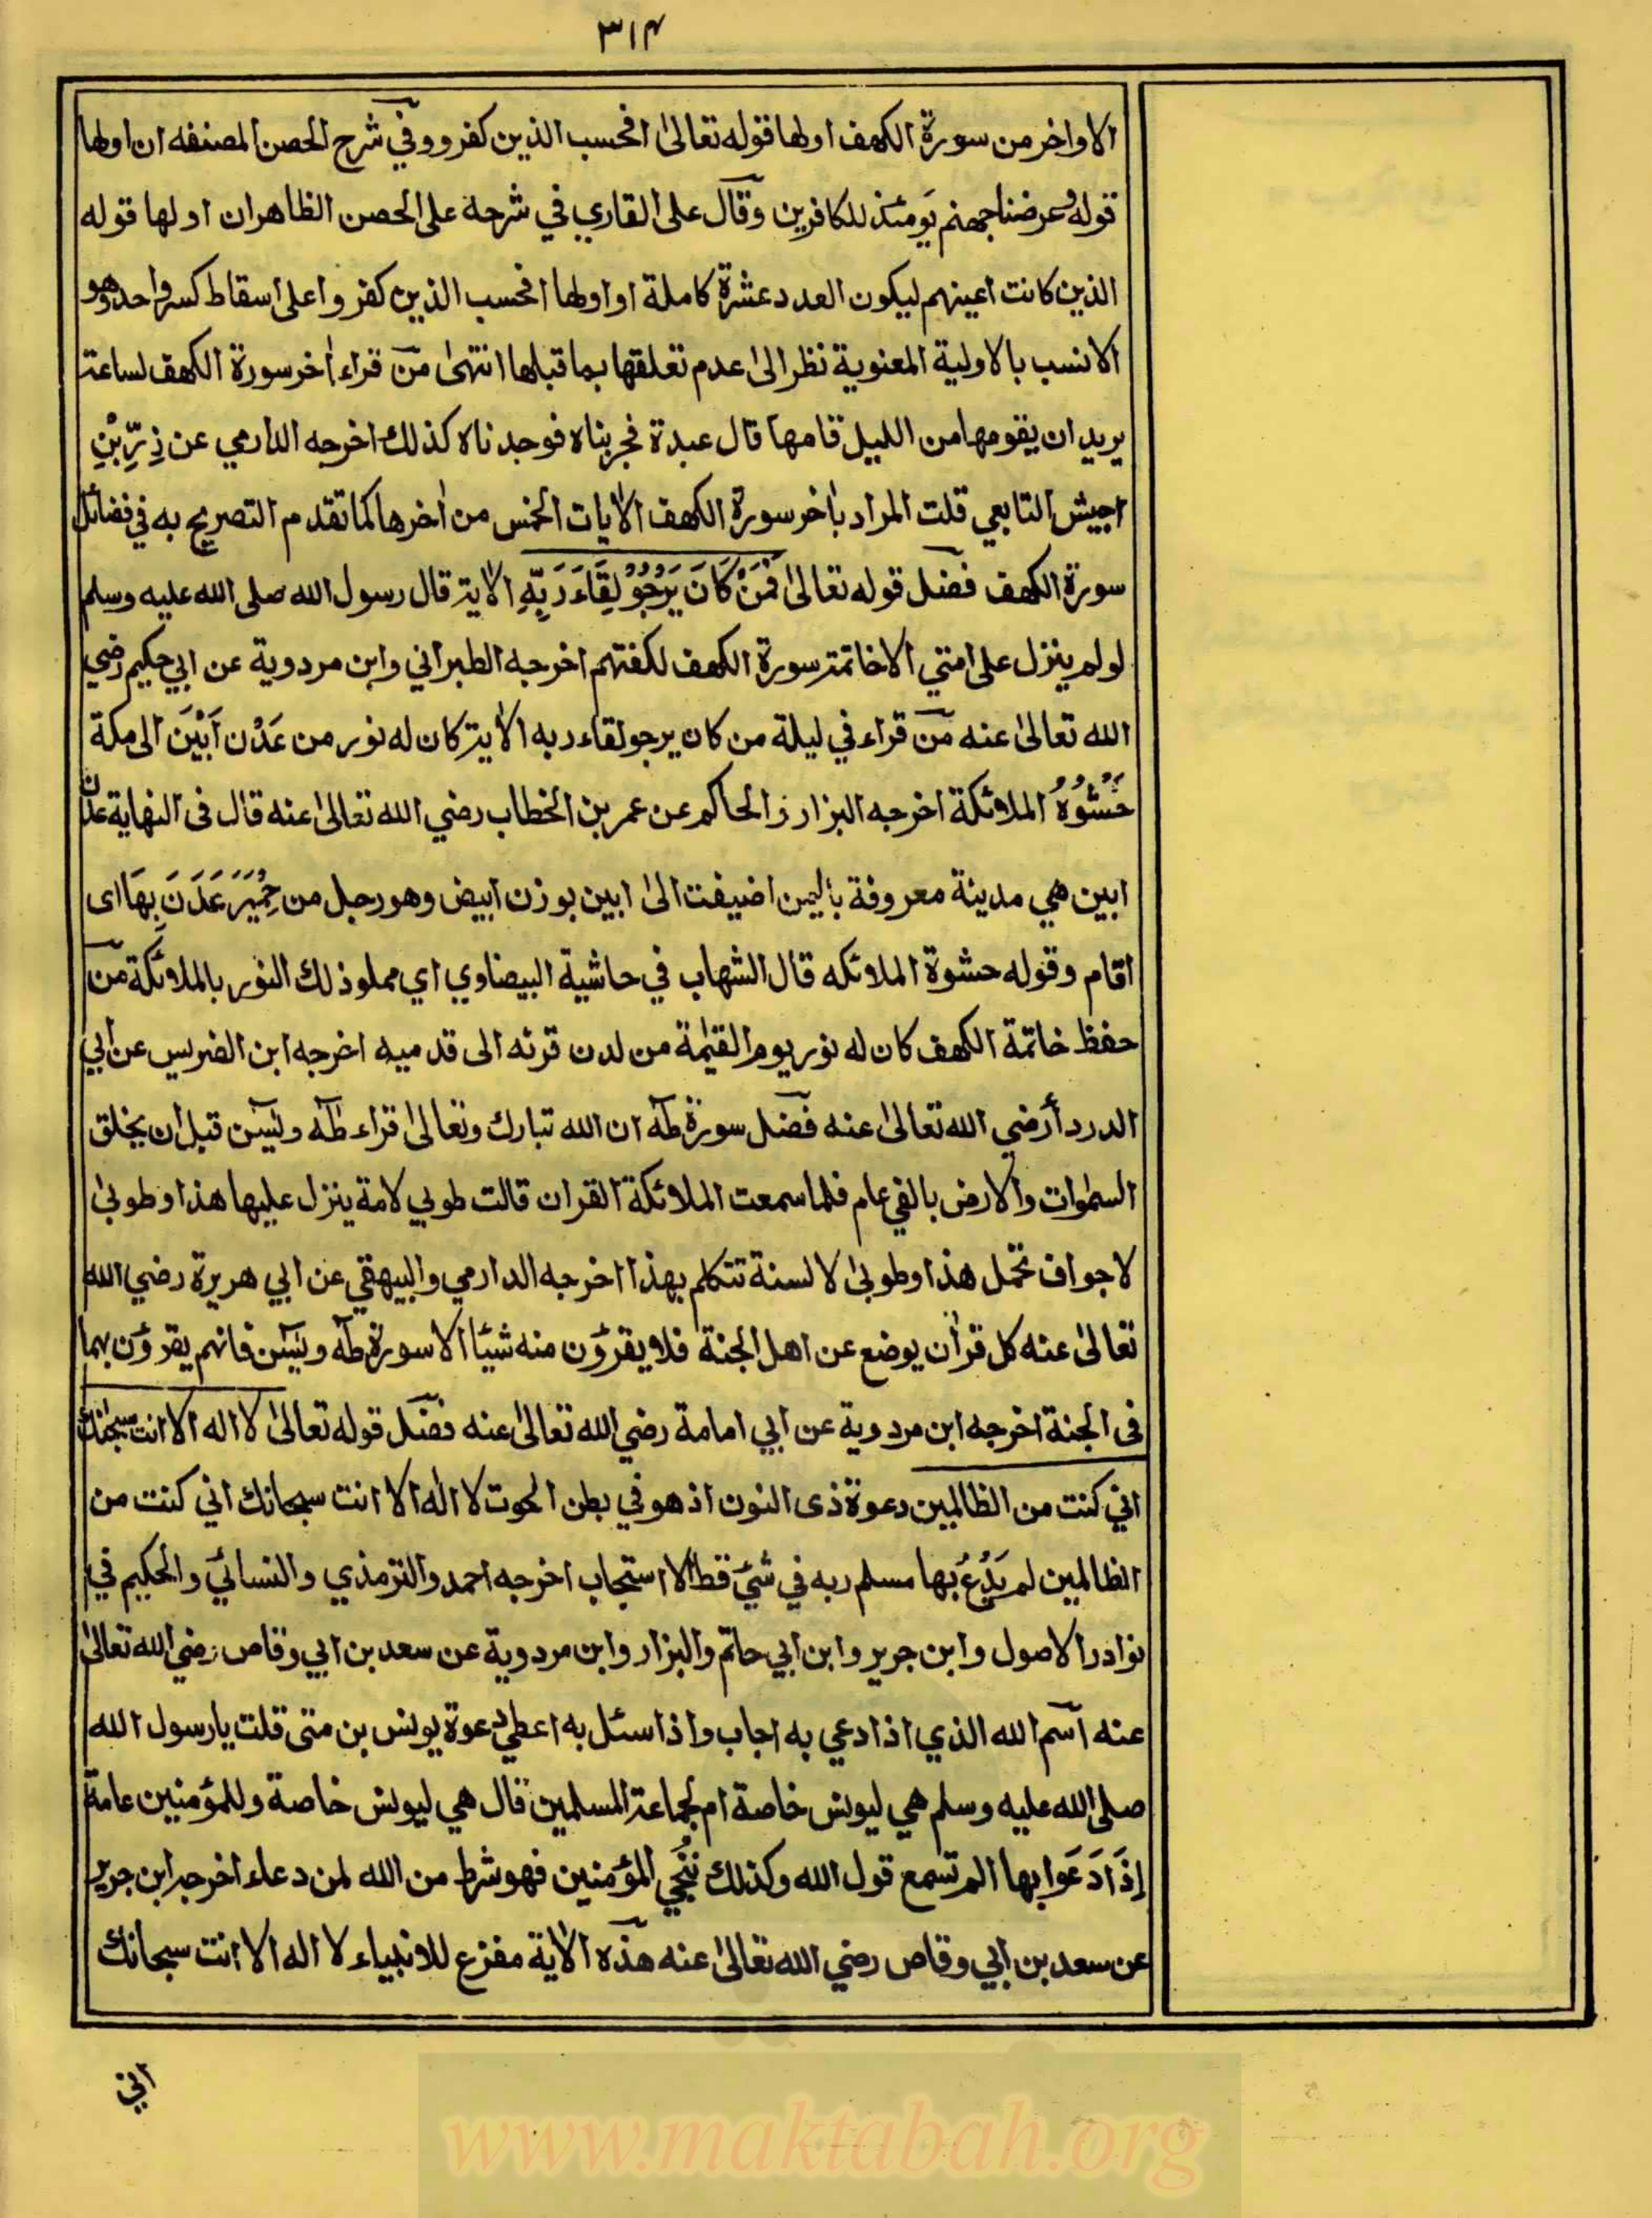 ٣١٣
الاواخر من سورة الكهف اولها قوله تعالىٰ افحسب الذين كفروا وفي شرح الحصن لمصنفه ان اولها
قوله وعرضنا جهنم يَومئذ للكافرين وقال على القاري في شرحه على الحصن الظاهر ان اولها قوله
الذين كانت اعينهم ليكون العدد عشرة كاملة او اولها افحسب الذين كفروا على اسقاط كسر واحد وهو
الانسب بالاولية المعنوية نظر الىٰ عدم تعلقها بما قبلها انتهىٰ من قراء اٰخر سورة الكهف لساعة
يريد ان يقومها من الليل قامها قال عبدة فجربناه فوجدناه كذلك اخرجه الدارمي عن زِرِّبْنِ
اجيش التابعي قلت المراد باٰخر سورة الكهف الاٰيات الخمس من اٰخرها كما تقدم التصريح به في فضائل
سورة الكهف فضل قوله تعالىٰ فَمَنْ كَانَ يَرْجُوْ لِقَاءَ رَبِّهِ الاٰية قال رسول الله صلى الله عليه وسلم
لو لم ينزل على امتي الا خاتمة سورة الكهف لكفتهم اخرجه الطبراني وابن مردوية عن ابي حكيم رضي
الله تعالىٰ عنه من قراء في ليلة من كان يرجو لقاء ربه الاٰية كان له نور من عَدْن اَبْيَنَ الى مكة
حَشْوُهُ الملائكة اخرجه البزار والحاكم عن عمر بن الخطاب رضي الله تعالىٰ عنه قال فى النهاية عدن
ابين هي مدينة معروفة باليمن اضيفت الىٰ ابين بوزن ابيض وهو رجل من حِمْيَرَ عَدَنَ بِهَا اى
اقام وقوله حشوة الملائكه قال الشهاب في حاشية البيضاوي اي مملو ذلك النور بالملائكة من
حفظ خاتمة الكهف كان له نور يوم القيٰمة من لدن قرنه الى قدميه اخرجه ابن الضريس عن ابي
الدرداء رضي الله تعالىٰ عنه فضل سورة طٰهٰ ان الله تبارك وتعالىٰ قراء طٰهٰ ويٰسٓ قبل ان يخلق
السمٰوات والارض بالفي عام فلما سمعت الملائكة القران قالت طوبي لامة ينزل عليها هذا وطوبىٰ
لاجواف تحمل هذا وطوبىٰ لالسنة تتكلم بهذا اخرجه الدارمي والبيهقي عن ابي هريرة رضي الله
تعالىٰ عنه كل قراٰن يوضع عن اهل الجنة فلا يقرؤن منه شيئا الا سورة طٰهٰ ويٰسٓ فانهم يقرؤن بهما
فى الجنة اخرجه ابن مردوية عن ابي امامة رضي الله تعالىٰ عنه فضل قوله تعالىٰ لا اله الا انت سبحٰنك
اني كنت من الظالمين دعوة ذى النون اذ هو في بطن الحوت لا الٰه الا انت سبحانك اني كنت من
الظالمين لم يَدْعُ بها مسلم ربه في شيئ قط الا استجاب اخرجه احمد والترمذي والنسائي والحكيم في
نوادر الاصول وابن جرير وابن ابي حاتم والبزار وابن مردوية عن سعد بن ابي وقاص رضي الله تعالىٰ
عنه اسم الله الذي اذا دعي به اجاب واذا سئل به اعطي دعوة يونس بن متى قلت يا رسول الله
صلى الله عليه وسلم هي ليونس خاصة ام لجماعة المسلمين قال هي ليونس خاصة وللمؤمنين عامة
اِذَا دَعَوا بها الم تسمع قول الله وكذلك نُنْجِي المؤمنين فهو شرط من الله لمن دعاه اخرجه ابن جرير
عن سعد بن ابي وقاص رضي الله تعالىٰ عنه هذه الاٰية مفزع للانبياء لا اله الا انت سبحانك
اني
www.maktabah.org